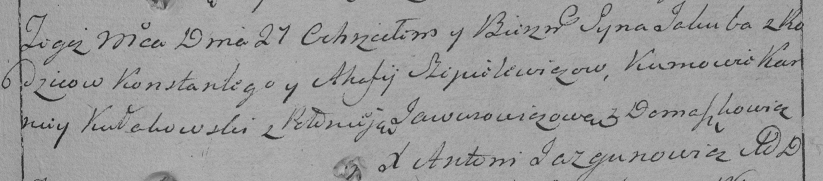 Tegoż Mca Dnia 27 Ochrzciłem y Bierzm Syna Jakuba z Ro
dzicow Konstantego y Ahafij Szpilewiczow, Kumowie Kar
niey Kułakowski z Połonieją Jawurowiczowa z Domaszkowicz
X Antoni Jazgunowicz AD